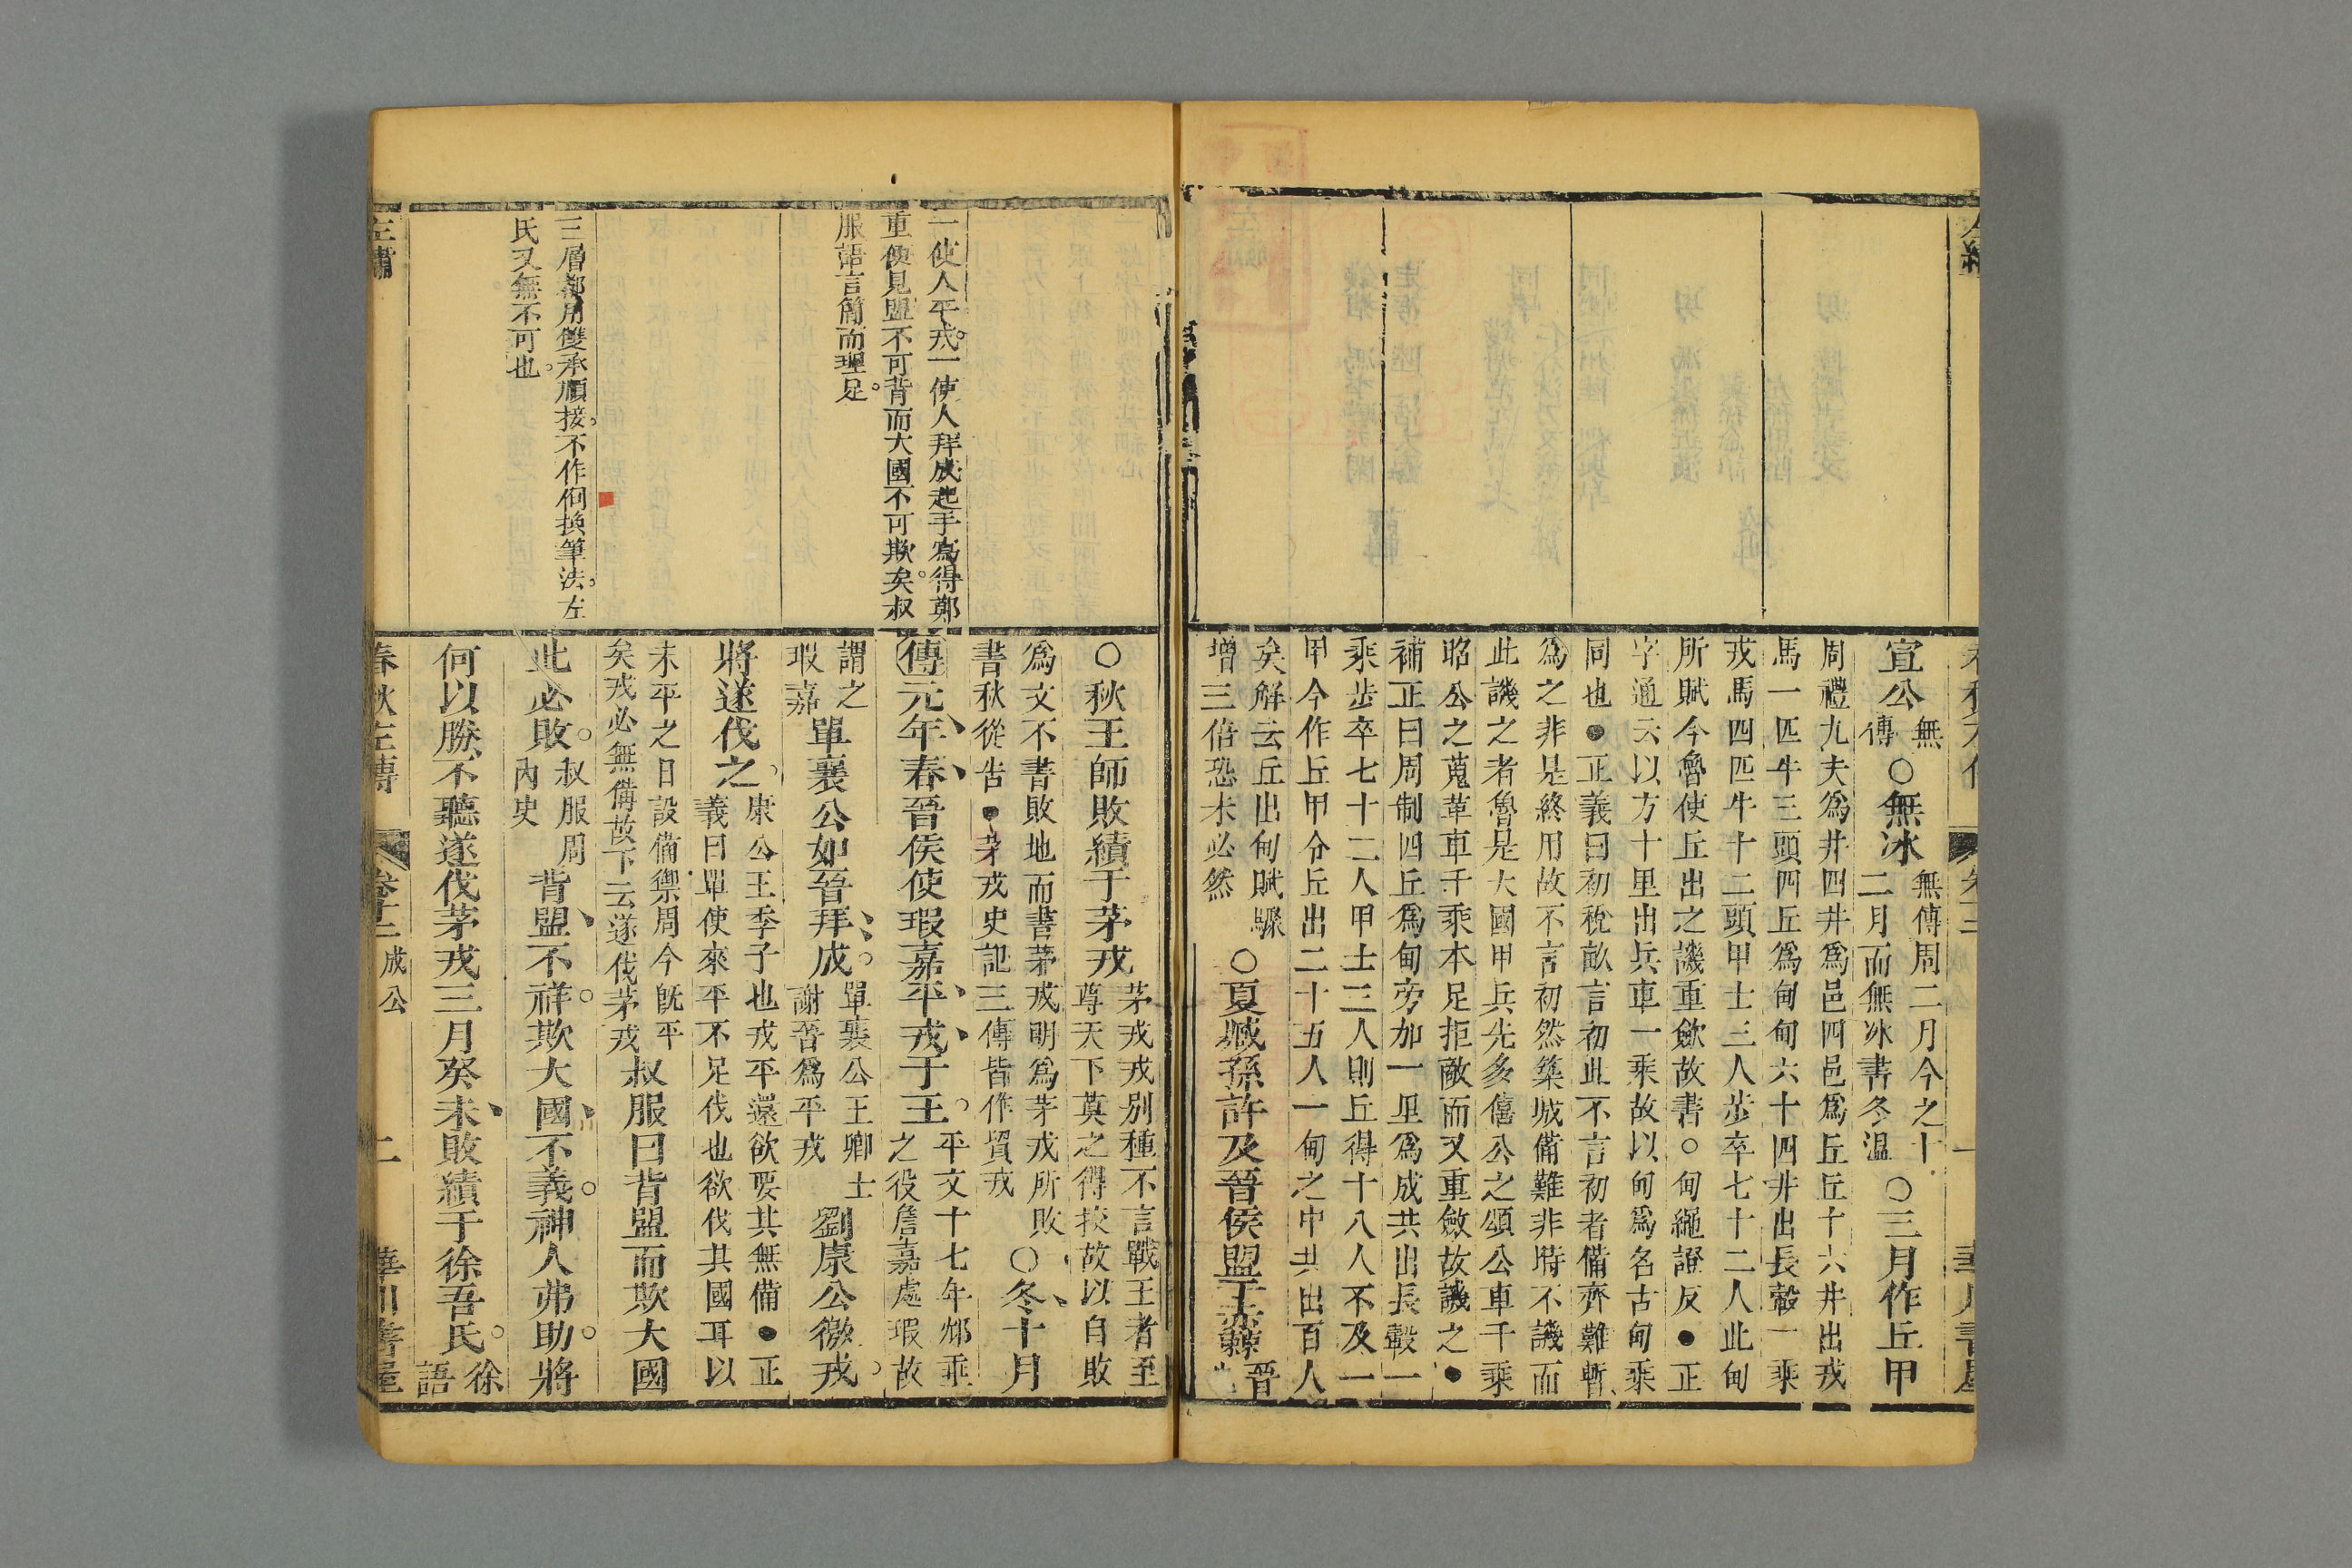 宣公無傳○無冰無傳周二月今之十二月而無冰書冬溫○三月作丘甲
周禮九夫爲井四井爲邑四邑爲丘丘十六井出戎
馬一匹牛三頭四丘爲甸甸六十四井出長轂一乘
戎馬四匹牛十二頭甲士三人步卒七十二人此甸
所賦今魯使丘出之譏重斂故書○甸繩證反●正
字通云以方十里出兵車一乘故以甸爲名古甸乘
同也●正義曰初稅畝言初此不言初者備齊難暫
爲之非是終用故不言初然築城備難非時不譏而
此譏之者魯是大國甲兵先多僖公之頌公車千乘
昭公之蒐革車千乘本足拒敵而又重斂故譏之●
補正曰周制四丘爲甸旁加一里爲成共出長轂一
乘步卒七十二人甲士三人則丘得十八人不及一
甲今作丘甲令丘出二十五人一甸之中共出百人
矣解云丘出甸賦驟增三倍恐未必然○夏臧孫許及晉侯盟于赤棘晉
○秋王師敗績于茅戎茅戎戎別種不言戰王者至尊天下莫之得挍故以自敗
爲文不書敗地而書茅戎明爲茅戎所敗書秋從告●茅戎史記三傳皆作貿戎○冬十月
一使人平戎。一使人拜成起手寫得鄭
重便見盟不可背而大國不可欺矣。叔
服語言簡而理足。
三層都用雙承順接。不作倒換筆法。左
氏又無不可也。
傳元年春晉侯使瑕嘉平戎于王。平文十七年邥乖之役詹嘉處瑕故
謂之瑕嘉單襄公如晉拜成。單襄公王卿士謝晉爲平戎劉康公徼戎。
將遂伐之康公王季子也戎平還欲要其無備●正義曰單使來平不足伐也欲伐其國耳以
未平之日設備禦周今旣平矣戎必無備故下云遂伐茅戎叔服曰背盟而欺大國
此必敗。叔服周內史背盟不祥。欺大國不義。神人弗助。將
何以勝不聽遂伐茅戎三月癸未敗績于徐吾氏。徐語
左繡
春秋左傳
卷十二成公
二
華川書屋